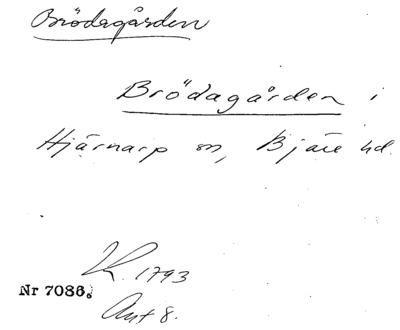 Brödagården
Brödagården i
Hjärnarp sn, Bjäre hd.
K. 1793
Nr 7086.
Ant 8.